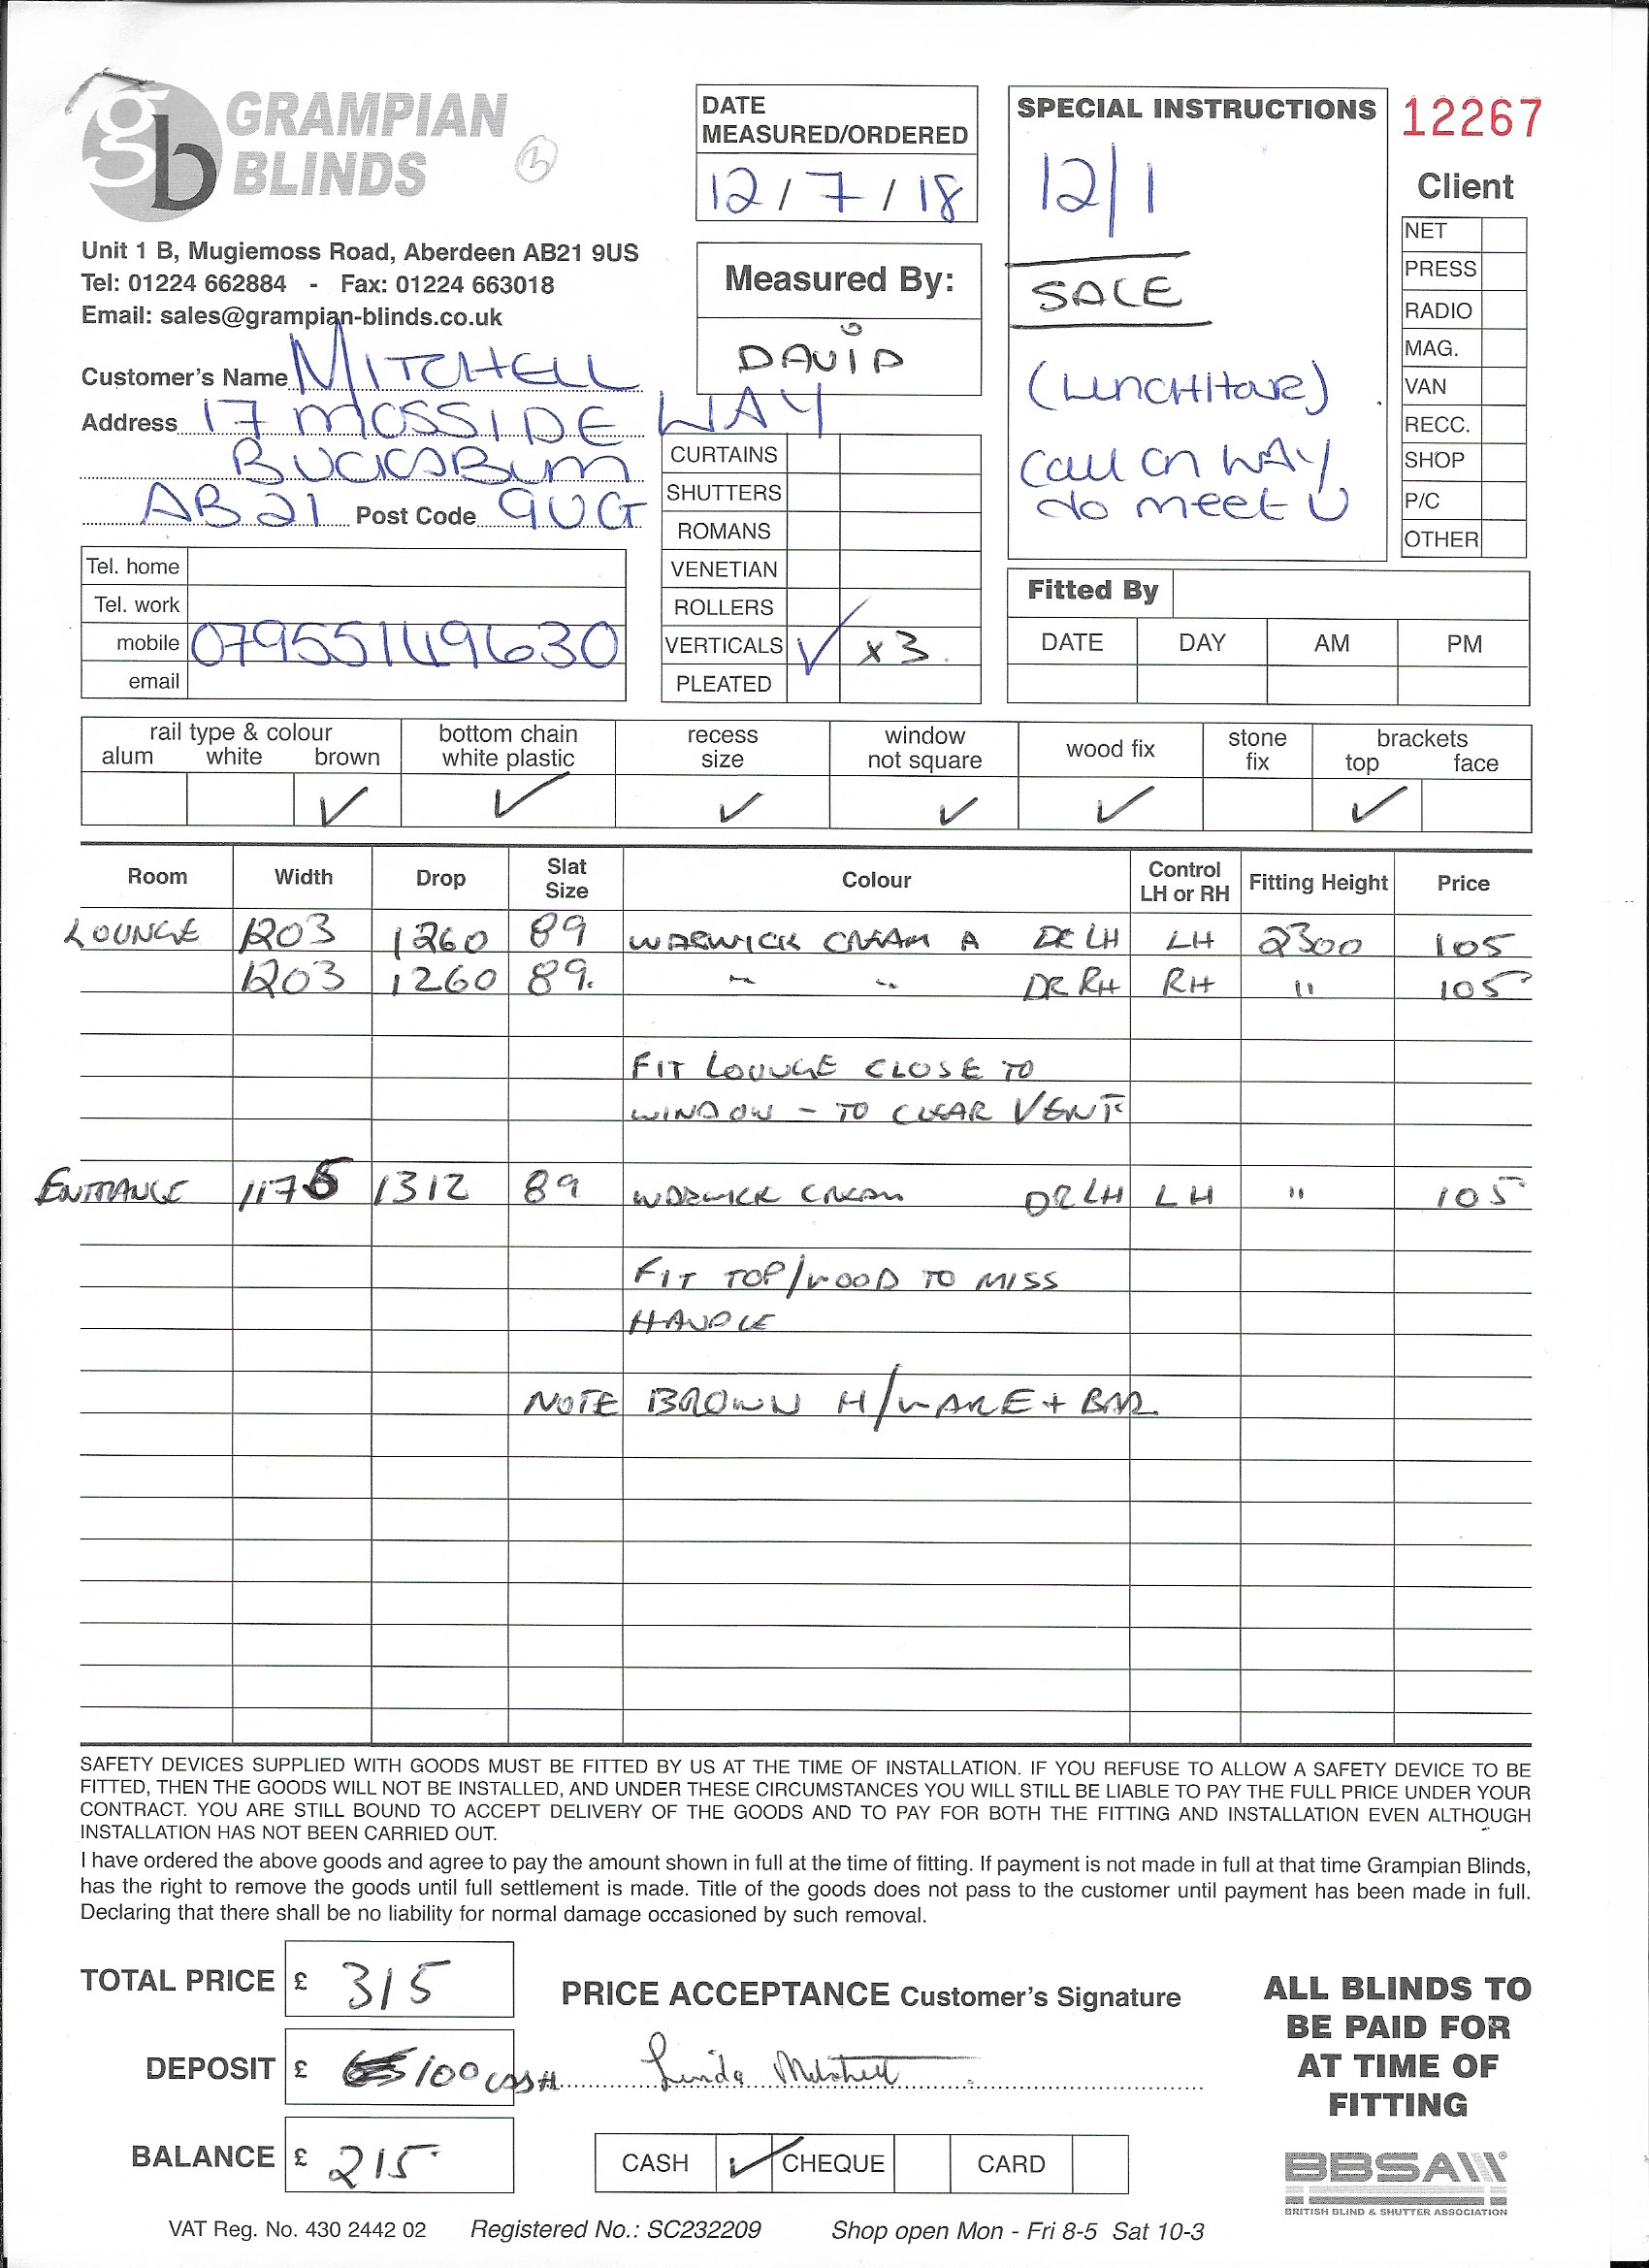 GRAMPIAN
BLINDS
gb
Unit 1 B, Mugiemoss Road, Aberdeen AB21 9US
Tel: 01224 662884 - Fax: 01224 663018
Email: sales@grampian-blinds.co.uk
Customer's Name MITCHELL
Address 17 MOSSIDE WAY
BUCKSBURN
AB21 Post Code 9UG
Tel. home
Tel. work
mobile 07955149630
email
DATE
MEASURED/ORDERED
12/7/18
Measured By:
DAVID
CURTAINS
SHUTTERS
ROMANS
VENETIAN
ROLLERS
VERTICALS ✓ x3
PLEATED
SPECIAL INSTRUCTIONS
12/1
SALE
(LUNCHHOUR)
CALL ON WAY
to meet U
12267
Client
NET
PRESS
RADIO
MAG.
VAN
RECC.
SHOP
P/C
OTHER
Fitted By
DATE DAY AM PM
rail type & colour bottom chain recess window wood fix stone brackets
alum white brown white plastic size not square fix top face
✓ ✓ ✓ ✓ ✓ ✓
Room Width Drop Slat Size Colour Control LH or RH Fitting Height Price
LOUNGE 1203 1260 89 WARWICK CREAM A DR LH LH 2300 105
1203 1260 89. " " DR RH RH " 105
FIT LOUNGE CLOSE TO
WINDOW - TO CLEAR VENT
ENTRANCE 1175 1312 89 WARWICK CREAM DR LH LH " 105
FIT TOP/WOOD TO MISS
HANDLE
NOTE BROWN H/WARE + BAR
SAFETY DEVICES SUPPLIED WITH GOODS MUST BE FITTED BY US AT THE TIME OF INSTALLATION. IF YOU REFUSE TO ALLOW A SAFETY DEVICE TO BE
FITTED, THEN THE GOODS WILL NOT BE INSTALLED, AND UNDER THESE CIRCUMSTANCES YOU WILL STILL BE LIABLE TO PAY THE FULL PRICE UNDER YOUR
CONTRACT. YOU ARE STILL BOUND TO ACCEPT DELIVERY OF THE GOODS AND TO PAY FOR BOTH THE FITTING AND INSTALLATION EVEN ALTHOUGH
INSTALLATION HAS NOT BEEN CARRIED OUT.
I have ordered the above goods and agree to pay the amount shown in full at the time of fitting. If payment is not made in full at that time Grampian Blinds,
has the right to remove the goods until full settlement is made. Title of the goods does not pass to the customer until payment has been made in full.
Declaring that there shall be no liability for normal damage occasioned by such removal.
TOTAL PRICE £ 315
DEPOSIT £ 100 CASH
BALANCE £ 215
PRICE ACCEPTANCE Customer's Signature
Linda Mitchell
CASH ✓ CHEQUE CARD
ALL BLINDS TO
BE PAID FOR
AT TIME OF
FITTING
BBSA
BRITISH BLIND & SHUTTER ASSOCIATION
VAT Reg. No. 430 2442 02 Registered No.: SC232209 Shop open Mon - Fri 8-5 Sat 10-3